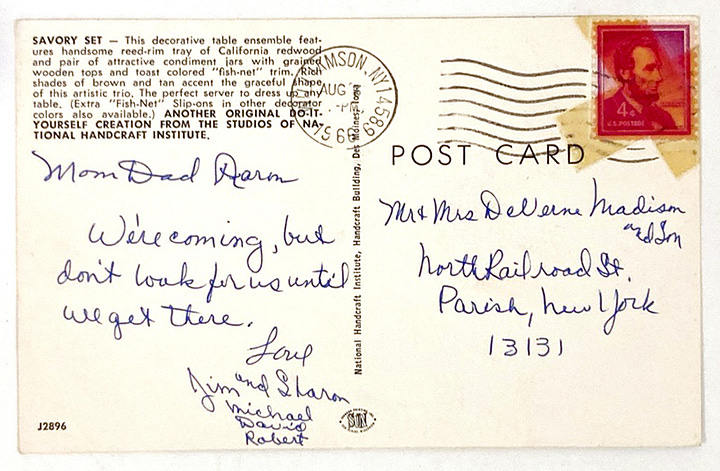 SAVORY SET — This decorative table ensemble feat-
ures handsome reed-rim tray of California redwood
and pair of attractive condiment jars with grained
wooden tops and toast colored "fish-net" trim. Rich
shades of brown and tan accent the graceful shape
of this artistic trio. The perfect server to dress up any
table. (Extra "Fish-Net" Slip-ons in other decorator
colors also available.) ANOTHER ORIGINAL DO-IT-
YOURSELF CREATION FROM THE STUDIOS OF NA-
TIONAL HANDCRAFT INSTITUTE.
Mom Dad Aaron
We're coming, but
don't look for us until
we get there.
Love
Jim and Sharon
Michael
David
Robert
J2896
National Handcraft Institute, Handcraft Building, Des Moines, Iowa
N.Y. 14589
AUG
PM
POST CARD
4¢
U.S. POSTAGE
Mr & Mrs DeVerne Madison
and Son
North Railroad St.
Parish, New York
13131